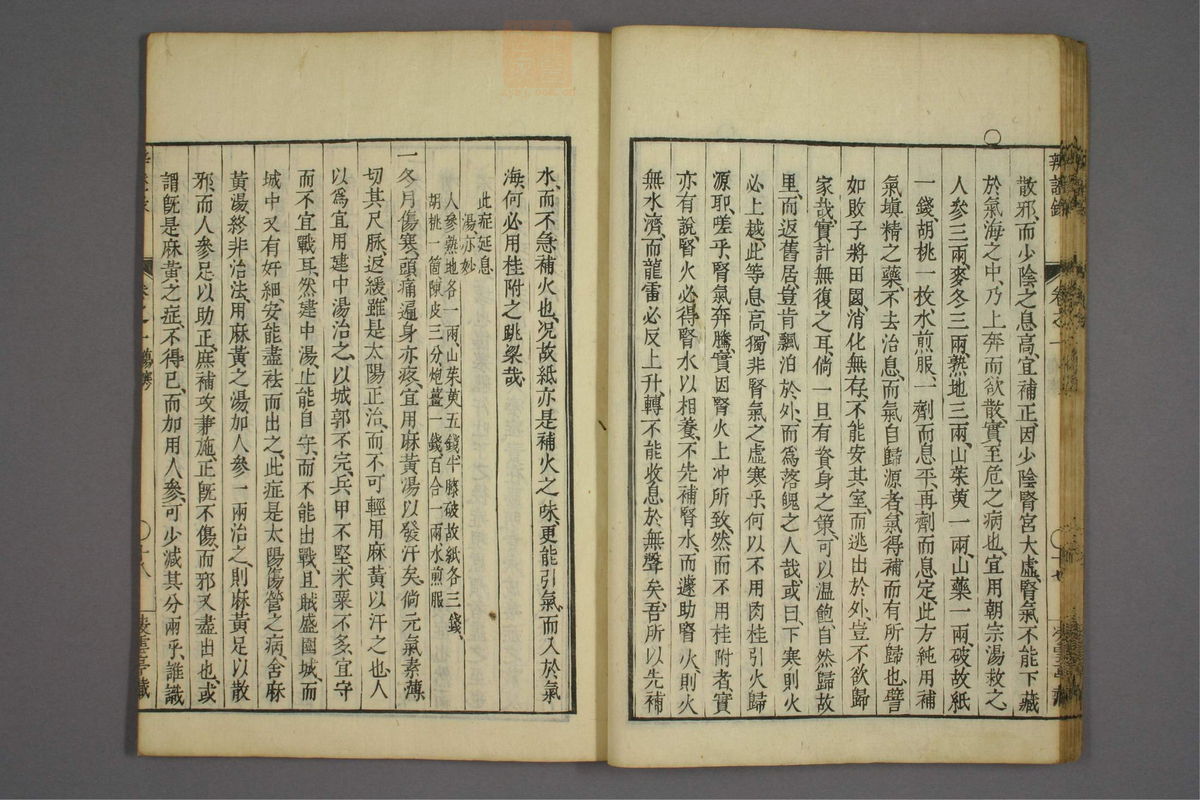 散邪、而少陰之息高、宜補正、因少陰腎宮大虛、腎氣不能下藏
於氣海之中、乃上奔而欲散、實至危之病也、宜用朝宗湯救之、
人參三兩、麥冬三兩、熟地三兩、山茱萸一兩、山藥一兩、破故紙
一錢、胡桃一枚水煎服、一劑而息平、再劑而息定、此方純用補
氣塡精之藥、不去治息、而氣自歸源者、氣得補而有所歸也、譬
如敗子將田園、消化無存、不能安其室、而逃出於外、豈不欲歸
家哉、實計無復之耳、倘一旦有資身之策、可以溫飽自然歸故
里、而返舊居、豈肯飄泊於外、而爲落魄之人哉、或曰、下寒則火
必上越、此等息高、獨非腎氣之虛寒乎、何以不用肉桂引火歸
源耶、嗟乎、腎氣奔騰、實因腎火上冲所致、然而不用桂附者、實
亦有說、腎火必得腎水以相養、不先補腎水、而遽助腎火、則火
無水濟、而龍雷必反上升、轉不能收息於無聲矣、吾所以先補
水、而不急補火也、况故紙亦是補火之味、更能引氣、而入於氣
海、何必用桂附之跳梁哉、
此症延息
湯、亦妙
人參熟地各一兩、山茱萸五錢牛膝破故紙各三錢、
胡桃一箇陳皮三分炮薑一錢百合一兩水煎服
一冬月傷寒、頭痛遍身亦疼、宜用麻黃湯以發汗矣、倘元氣素薄、
切其尺脉、返緩、雖是太陽正治、而不可輕用麻黃以汗之也、人
以爲宜用建中湯治之、以城郭不完、兵甲不堅、米粟不多、宜守
而不宜戰耳、然建中湯、止能自守、而不能出戰、且賊盛圍城、而
城中又有奸細、安能盡祛而出之、此症是太陽傷營之病、舍麻
黃湯終非治法、用麻黃之湯加人參一兩治之、則麻黃足以散
邪、而人參足以助正、庶補攻兼施、正旣不傷、而邪又盡出也、或
謂旣是麻黃之症、不得已、而加用人參、可少減其分兩乎、誰識